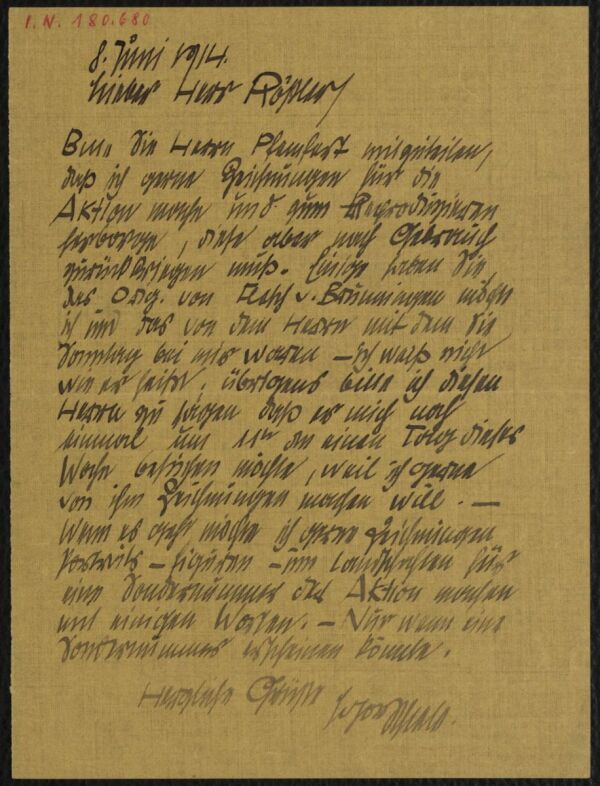 I.N. 180.680
8. Juni 1914.
Lieber Herr Rößler!
Bitte Sie Herrn Pfemfert mitzuteilen,
daß ich gerne Zeichnungen für die
Aktion mache und zum Reproduzieren
herborge, diese aber nach Gebrauch
zurückkriegen muß. Einige haben Sie
des Orig. von v. Brünningen möchte
ich und das von dem Herrn mit dem Sie
Sonntag bei mir waren – ich weiß nicht
wie er heißt, übrigens bitte ich diesen
Herrn zu sagen daß er mich noch
einmal um 11h an einem Tag dieser
Woche besuchen möchte, weil ich gerne
von ihm Zeichnungen machen will. –
Wenn es geht möchte ich gerne Zeichnungen
Portraits – Figuren – und Landschaften für
eine Sondernummer der Aktion machen
mit einigen Worten. – Nur wenn eine
Sondernummer erscheinen könnte.
Herzliche Grüße Schiele.